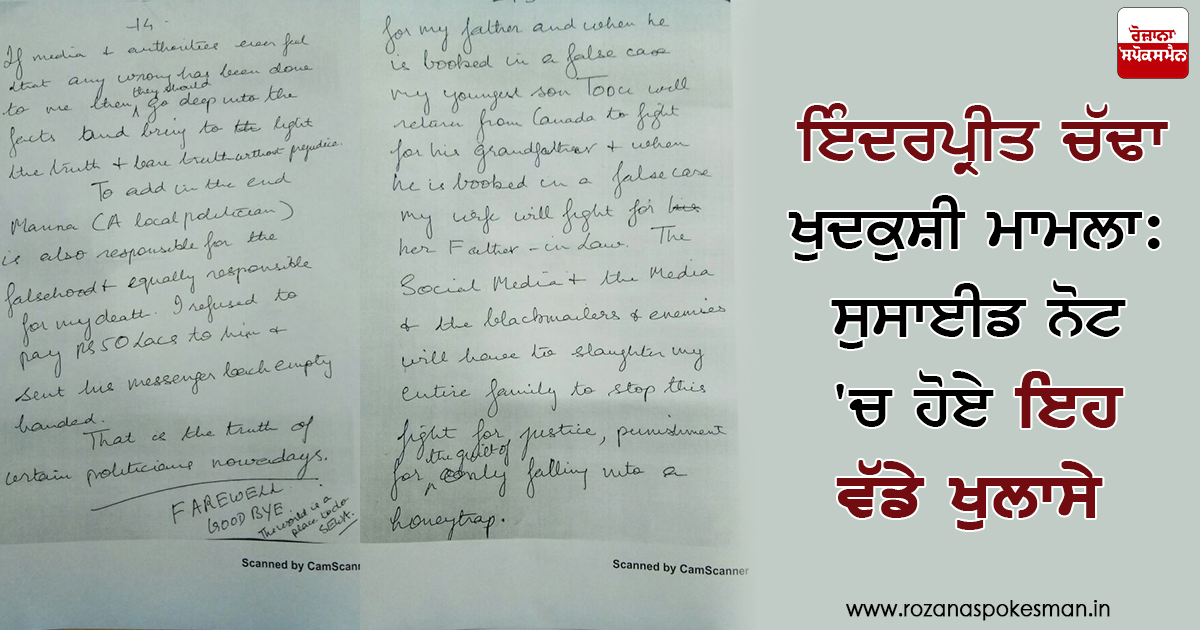 -14-
If media & authorities ever feel
that any wrong has been done
to me then, they should go deep into the
facts and bring to the light
the truth & bare truth without prejudice.
To add in the end
Manna (A local politician)
is also responsible for the
falsehood & equally responsible
for my death. I refused to
pay Rs 50 Lacs to him &
sent his messenger back empty
handed.
That is the truth of
certain politicians nowadays.
FAREWELL
GOOD BYE
The world is a
place to do
SEWA.
Scanned by CamScanner
for my father and when he
is booked in a false case
my youngest son will
return from Canada to fight
for his grandfather & when
he is booked in a false case
my wife will fight for his
her Father-in-Law. The
Social Media & the Media
& the blackmailers & enemies
will have to slaughter my
entire family to stop this
fight for justice, punishment
for the guilt of only falling into a
honeytrap.
Scanned by CamScanner
ਰੋਜ਼ਾਨਾ
ਸਪੋਕਸਮੈਨ
ਇੰਦਰਪ੍ਰੀਤ ਚੱਢਾ
ਖੁਦਕੁਸ਼ੀ ਮਾਮਲਾ:
ਸੁਸਾਈਡ ਨੋਟ
'ਚ ਹੋਏ ਇਹ
ਵੱਡੇ ਖੁਲਾਸੇ
www.rozanaspokesman.in